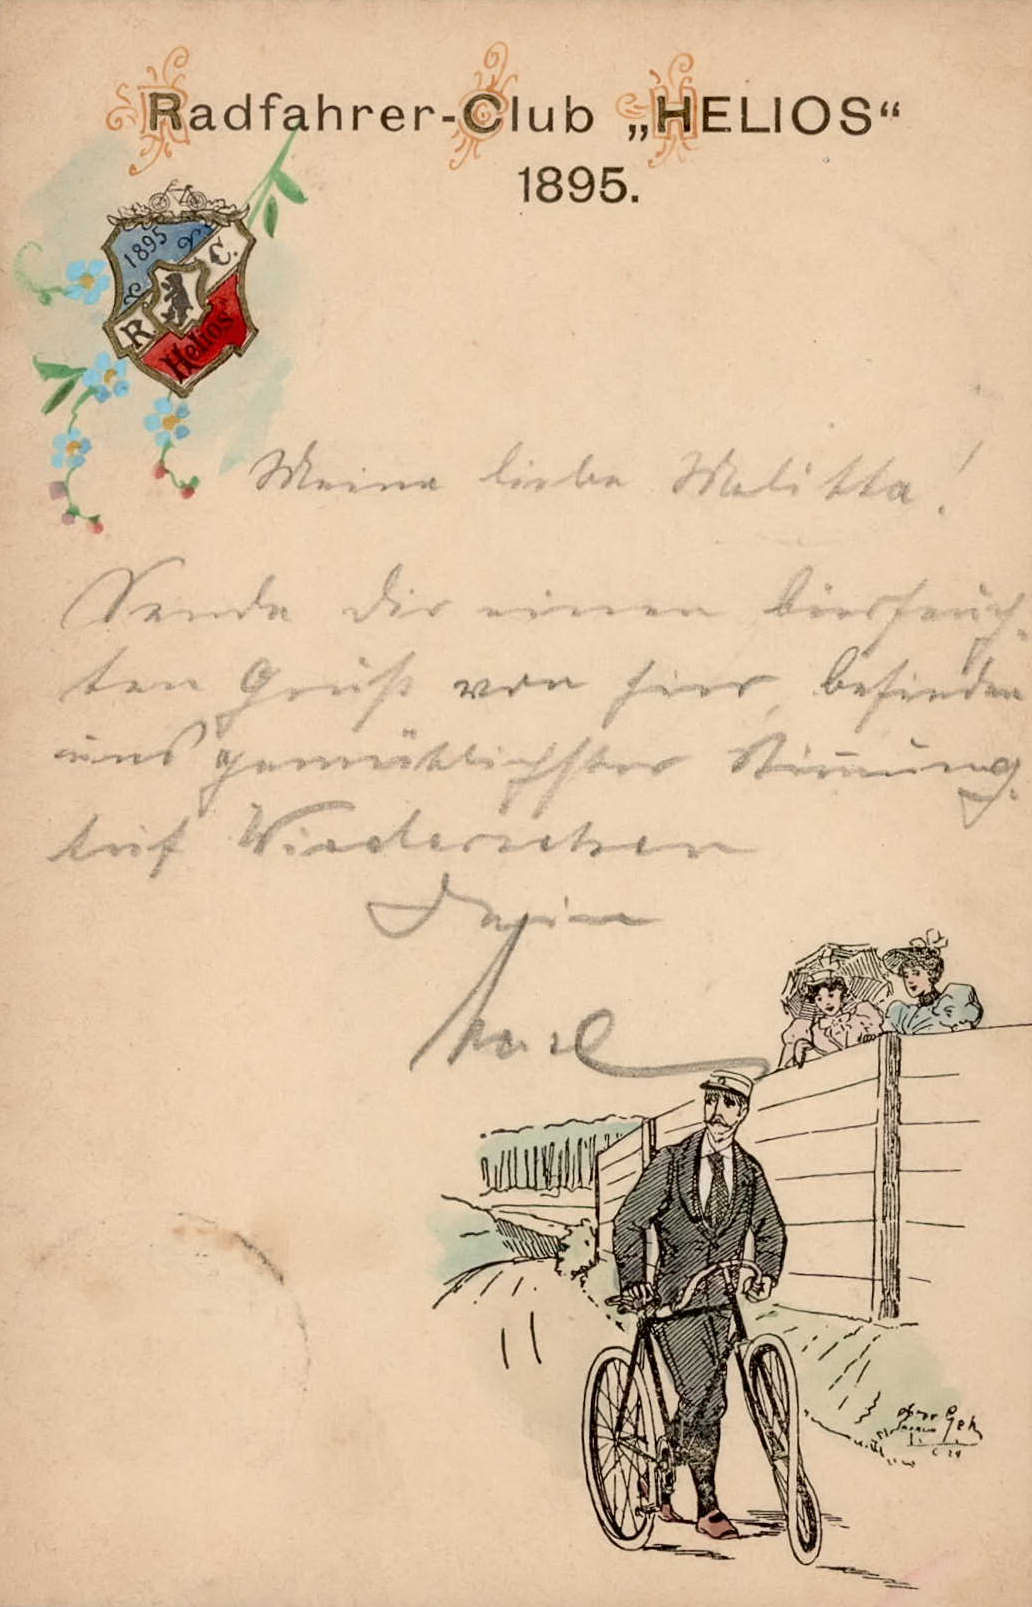 Radfahrer-Club „HELIOS“
1895.
1895
R. C.
Helios
Meine liebe Melitta!
Sende dir einen bierfeuch-
ten Gruß von hier, befinden
uns gemütlichster Stimmung.
Auf Wiedersehen
Dein
Karl